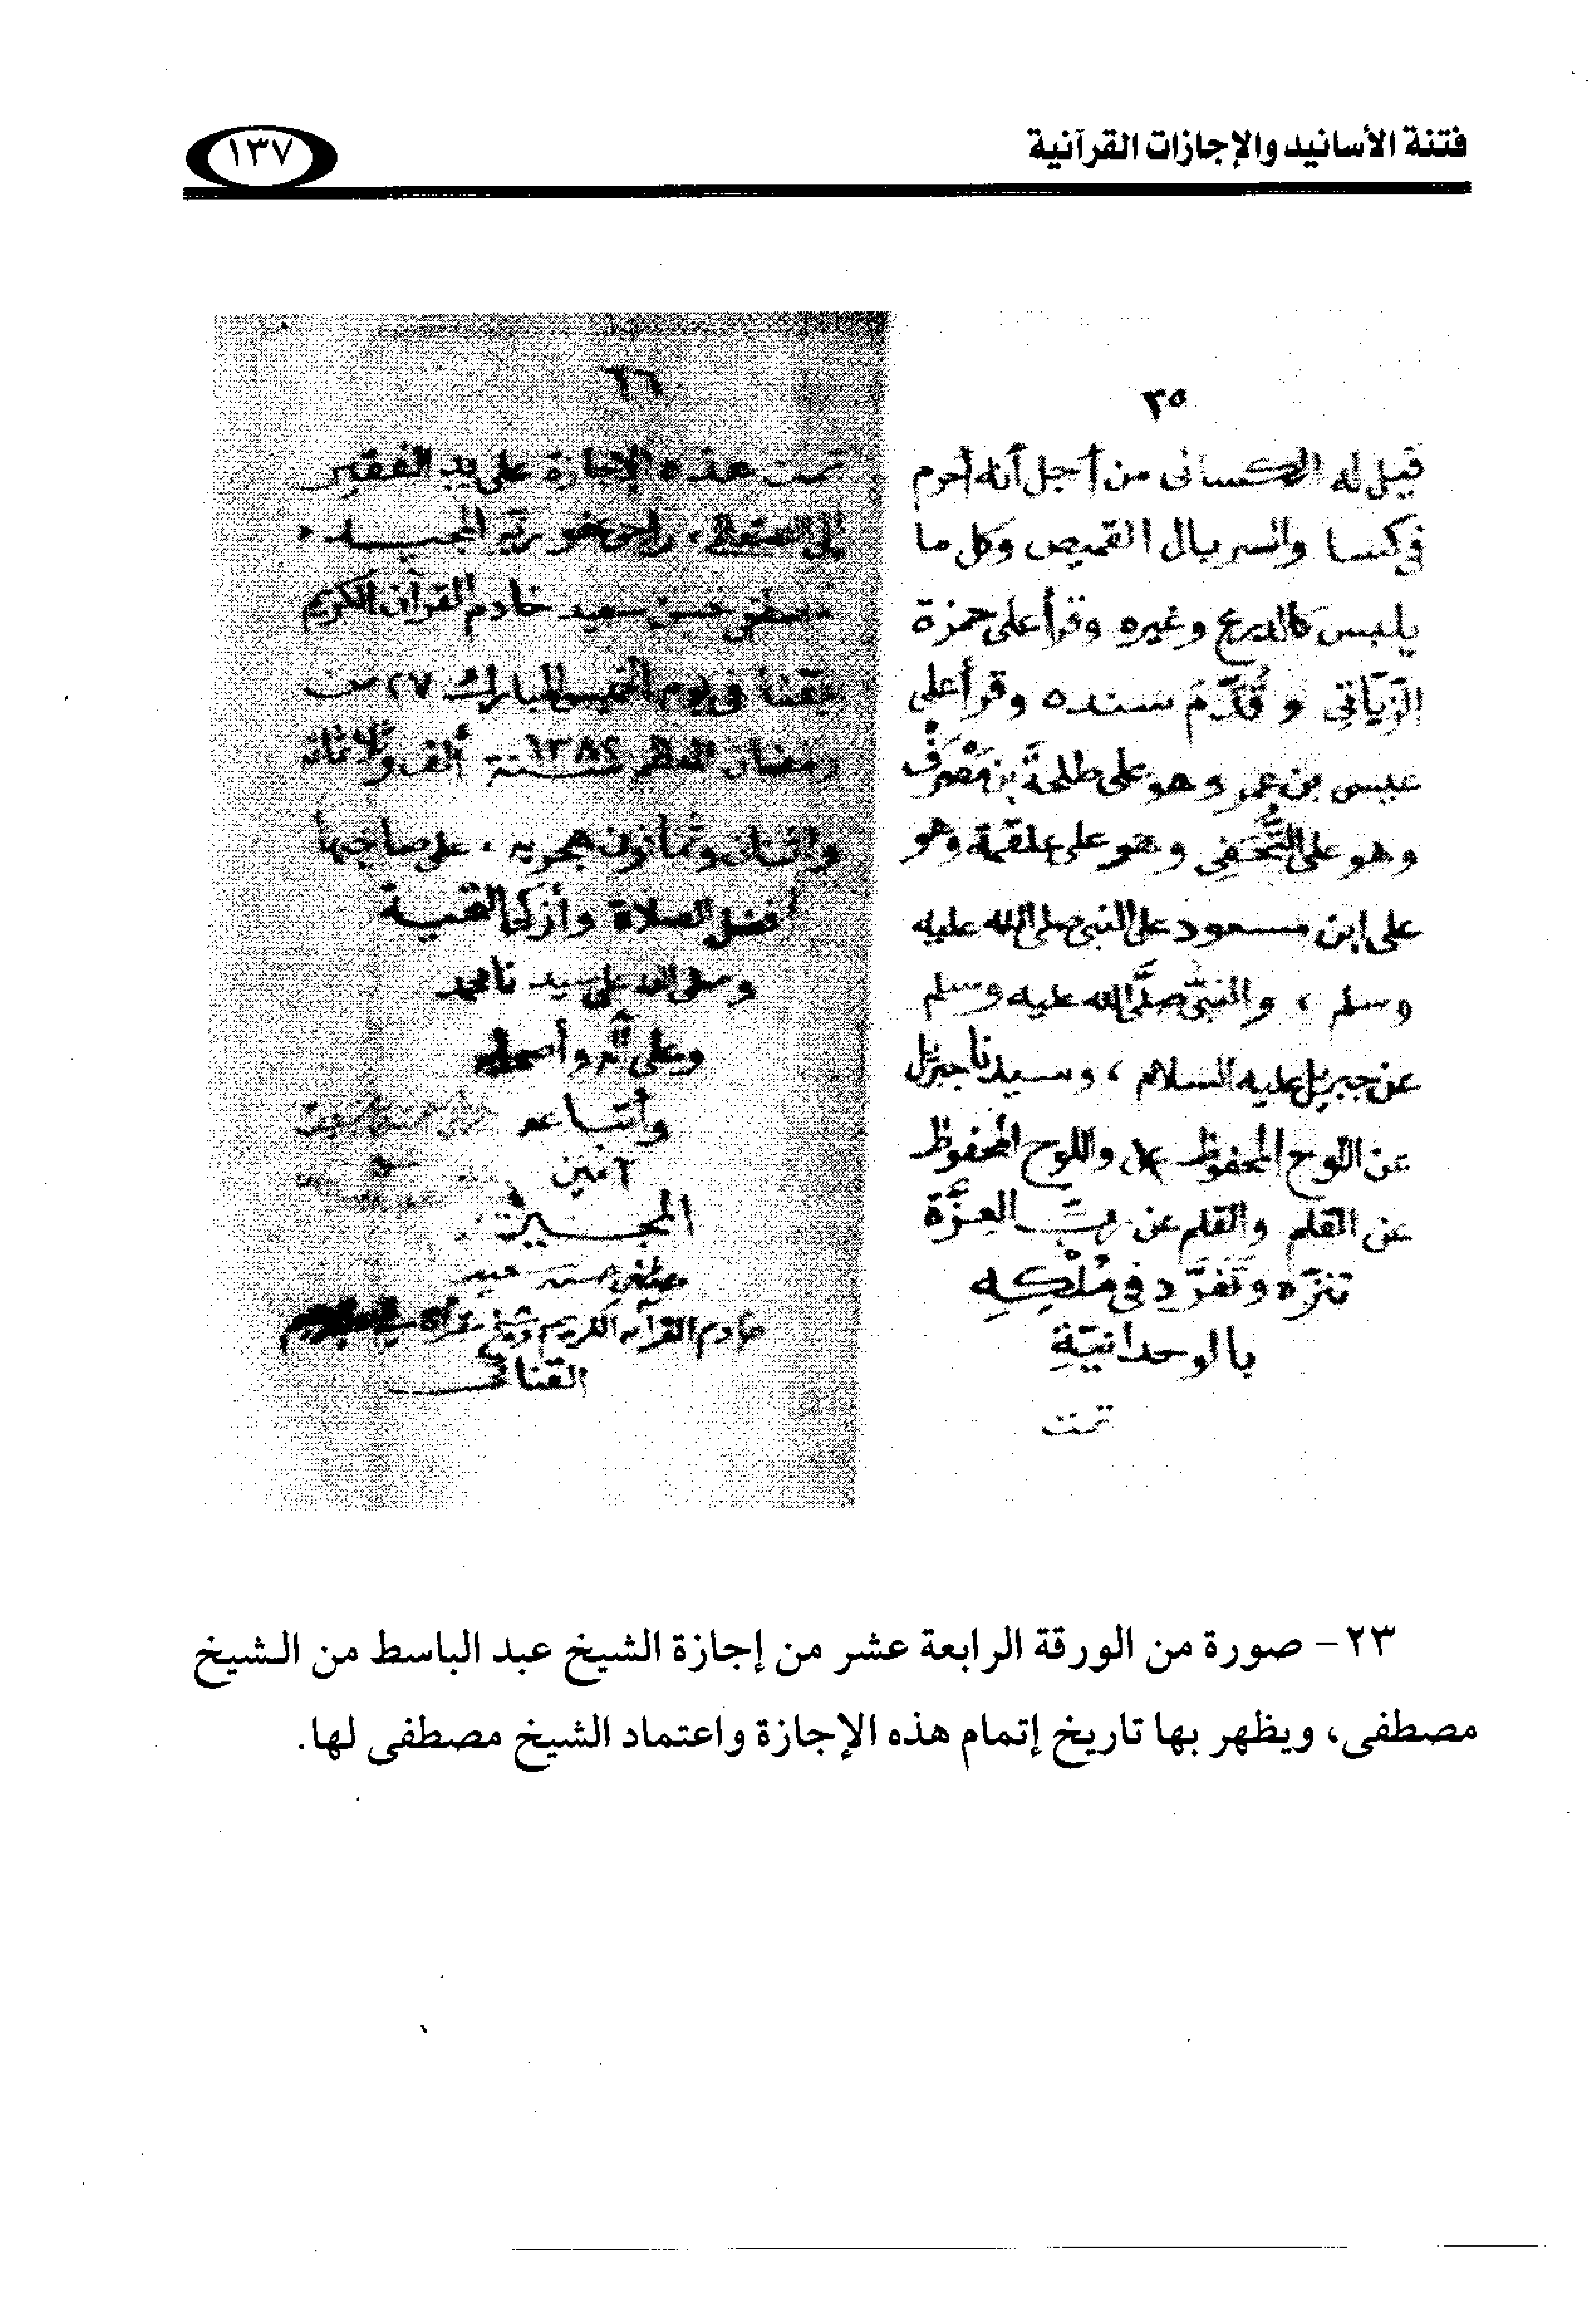 فتنة الأسانيد والإجازات القرآنية
١٣٧
٢٥
قيل له الكسائى من أجل أنه أحرم
فى كسا والسربال القميص وكل ما
يلبس كالدرع وغيره وقرأ على حمزة
الزَّيَّاتِ و قُدِّمَ سنده وقرأ على
عيسى بن عمر وهو على طلحة بن مُصَرِّف
وهو على النَّخَعِى وهو على علقمة وهو
على ابن مسعود على النبى صلى الله عليه
وسلم ، والنبىُّ صلَّى الله عليه وسلم
عن جبريل عليه السلام ، وسيدنا جبريل
عن اللوح المحفوظ واللوح المحفوظ
عن القلم والقلم عن ربِّ العِزَّة
تنزَّه وتَفَرَّد فى مُلْكِهِ
بالوحدانيَّةِ
تمت
٢٦
تمت هذه الإجازة على يد الفقير
إلى الله تعالى ، راجى عفو ربه المجيد ،
مصطفى حسن سعيد خادم القرآن الكريم
بقنا فى يوم الخميس المبارك ٢٧ من
رمضان المعظم سنة ١٣٨٢ ألف وثلاثمائة
واثنان وثمانون هجرية ، على صاحبها
أفضل الصلاة وأزكى التحية
وصلى الله على سيدنا محمد
وعلى آله وأصحابه
وأتباعه
آمين
المجيز
مصطفى حسن سعيد
خادم القرآن الكريم
القنائى
٢٣- صورة من الورقة الرابعة عشر من إجازة الشيخ عبد الباسط من الشيخ
مصطفى، ويظهر بها تاريخ إتمام هذه الإجازة واعتماد الشيخ مصطفى لها.